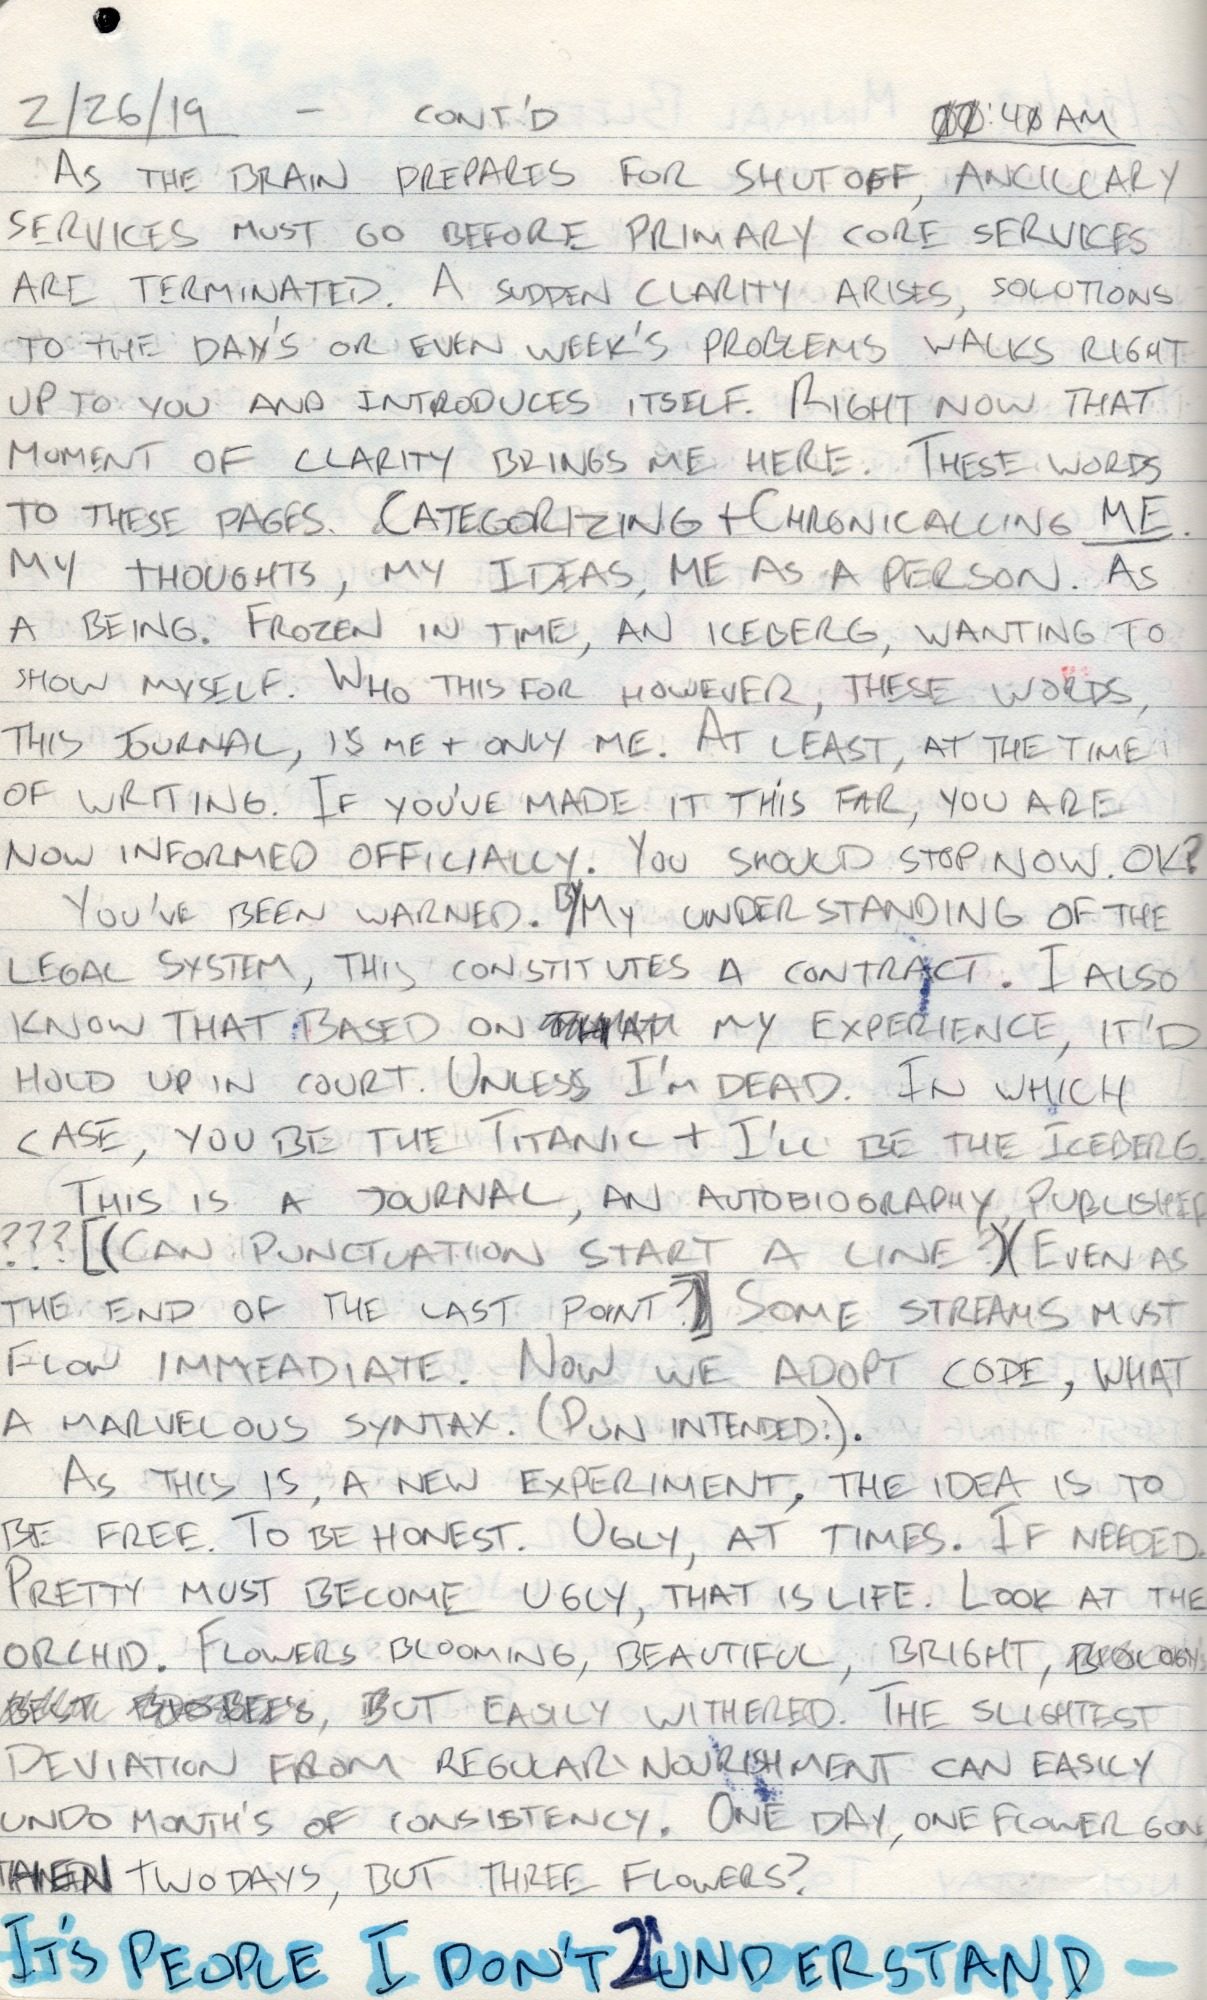 2/26/19 - CONT'D :40 AM
AS THE BRAIN PREPARES FOR SHUTOFF, ANCILLARY
SERVICES MUST GO BEFORE PRIMARY CORE SERVICES
ARE TERMINATED. A SUDDEN CLARITY ARISES, SOLUTIONS
TO THE DAY'S OR EVEN WEEK'S PROBLEMS WALKS RIGHT
UP TO YOU AND INTRODUCES ITSELF. RIGHT NOW THAT
MOMENT OF CLARITY BRINGS ME HERE. THESE WORDS
TO THESE PAGES. CATEGORIZING + CHRONICALLING ME.
MY THOUGHTS, MY IDEAS, ME AS A PERSON. AS
A BEING. FROZEN IN TIME, AN ICEBERG, WANTING TO
SHOW MYSELF. WHO THIS FOR HOWEVER, THESE WORDS,
THIS JOURNAL, IS ME + ONLY ME. AT LEAST, AT THE TIME
OF WRITING. IF YOU'VE MADE IT THIS FAR, YOU ARE
NOW INFORMED OFFICIALLY. YOU SHOULD STOP NOW. OK?
YOU'VE BEEN WARNED. BY MY UNDERSTANDING OF THE
LEGAL SYSTEM, THIS CONSTITUTES A CONTRACT. I ALSO
KNOW THAT BASED ON MY EXPERIENCE, IT'D
HOLD UP IN COURT. UNLESS I'M DEAD. IN WHICH
CASE, YOU BE THE TITANIC + I'LL BE THE ICEBERG.
THIS IS A JOURNAL, AN AUTOBIOGRAPHY, PUBLISHER
???[(CAN PUNCTUATION START A LINE?)(EVEN AS
THE END OF THE LAST POINT?)] SOME STREAMS MUST
FLOW IMMEADIATE. NOW WE ADOPT CODE, WHAT
A MARVELOUS SYNTAX. (PUN INTENDED:).
AS THIS IS, A NEW EXPERIMENT, THE IDEA IS TO
BE FREE. TO BE HONEST. UGLY, AT TIMES. IF NEEDED.
PRETTY MUST BECOME UGLY, THAT IS LIFE. LOOK AT THE
ORCHID. FLOWERS BLOOMING, BEAUTIFUL, BRIGHT,
BUT EASILY WITHERED. THE SLIGHTEST
DEVIATION FROM REGULAR NOURISHMENT CAN EASILY
UNDO MONTH'S OF CONSISTENCY. ONE DAY, ONE FLOWER GON
TWO DAYS, BUT THREE FLOWERS?
IT'S PEOPLE I DON'T UNDERSTAND -